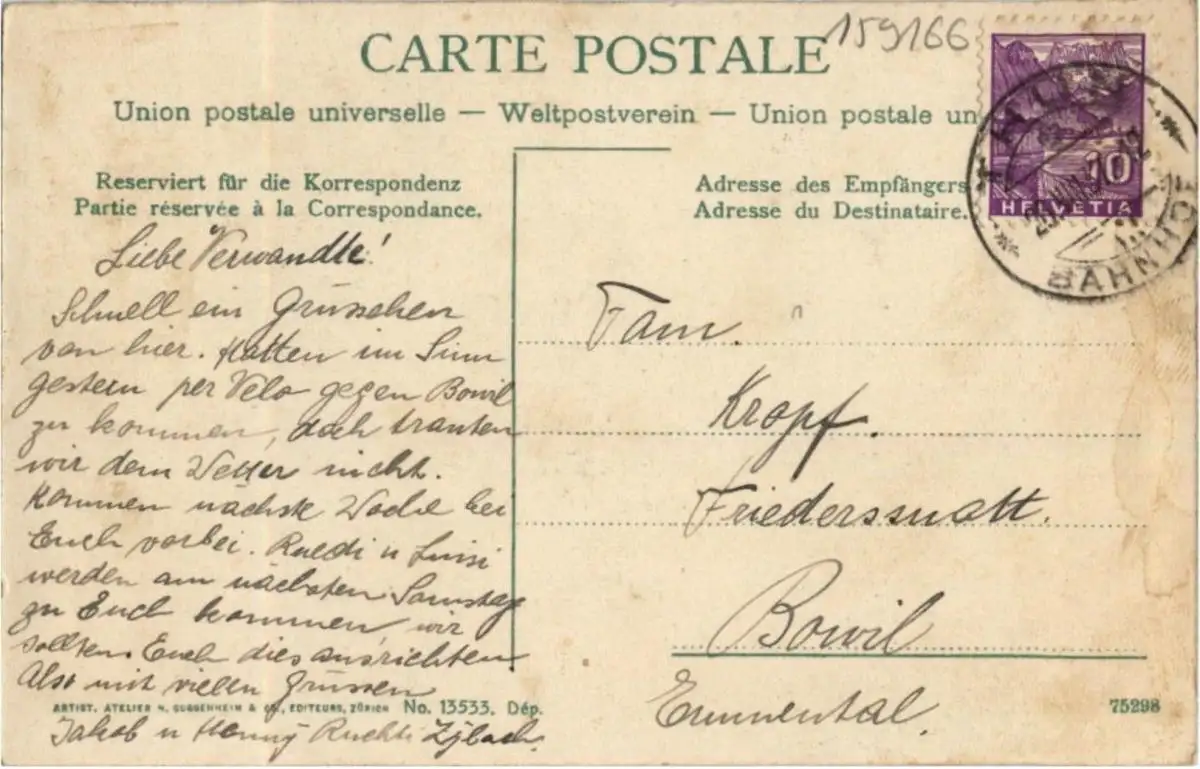 159166
CARTE POSTALE
Union postale universelle — Weltpostverein — Union postale un
Reserviert für die Korrespondenz
Partie réservée à la Correspondance.
Liebe Verwandte!
Schnell ein Grüsschen
von hier. Hatten im Sinn
gestern per Velo gegen Bowil
zu kommen, doch trauten
wir dem Wetter nicht.
Kommen nächste Woche bei
Euch vorbei. Ruedi u Luisi
werden am nächsten Samstag
zu Euch kommen, wir
sollten Euch dies ausrichten
Also mit vielen Grüssen
Jakob u Hanny Ruchti
ARTIST. ATELIER H. GUGGENHEIM & Co., EDITEURS, ZÜRICH No. 13533. Dép.
Adresse des Empfängers
Adresse du Destinataire.
10
HELVETIA
BAHNHOF
Fam.
Kropf.
Friedersmatt.
Bowil
Emmental.
75298